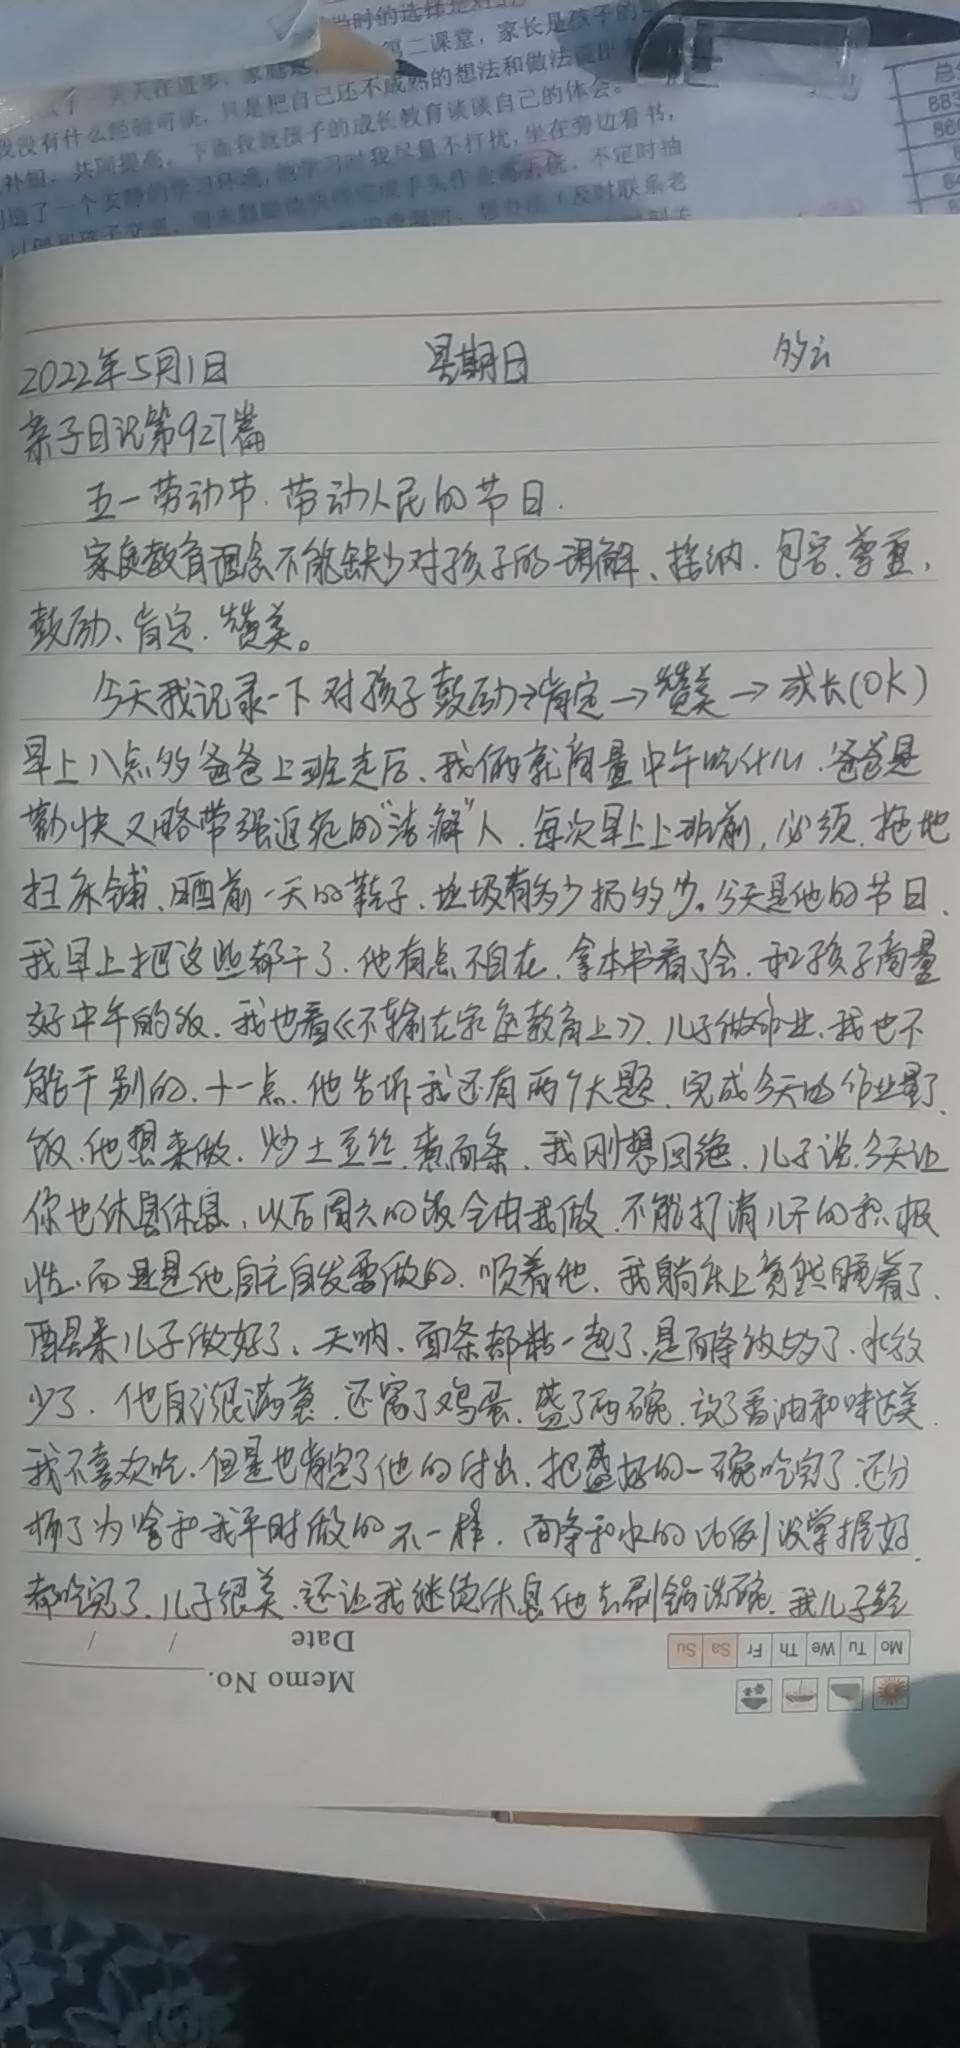 当时的选择是对的
第二课堂，家长是孩子的
一天天在进步、家庭是
我没有什么经验可谈，只是把自己还不成熟的想法和做法说出
补短，共同提高。下面我就孩子的成长教育谈谈自己的体会。
造了一个安静的学习环境，他学习时我尽量不打扰，坐在旁边看书，
不定时抽
及时联系老
总
883
2022年5月1日 星期日 多云
亲子日记第927篇
五一劳动节.劳动人民的节日.
家庭教育理念不能缺少对孩子的理解、接纳.包容、尊重,
鼓励、肯定.赞美。
今天我记录一下对孩子鼓励→肯定→赞美→成长(OK)
早上八点多爸爸上班走后、我俩就商量中午吃什么.爸爸是
勤快又略带强迫症的"洁癖"人.每次早上上班前,必须.拖地
扫床铺、晒前一天的鞋子.垃圾有多少扔多少。今天是他的节日.
我早上把这些都干了.他有点不自在.拿本书看了会.和孩子商量
好中午的饭.我也看《不输在家庭教育上》.儿子做作业.我也不
能干别的.十一点.他告诉我还有两个大题.完成今天的作业量了.
饭.他想来做.炒土豆丝.煮面条.我刚想回绝.儿子说.今天让
你也休息休息,以后周六的饭全由我做.不能打消儿子的积极
性.而且是他自主自发要做的.顺着他.我躺床上竟然睡着了.
醒来儿子做好了、天呐、面条都粘一起了.是面条放多了.水放
少了.他自己很满意.还窝了鸡蛋.盛了两碗.放了香油和味达美.
我不喜欢吃.但是也肯定了他的付出.把盛好的一碗吃完了.还分
析了为啥和我平时做的不一样.面条和水的比例没掌握好.
都吃完了.儿子很美.还让我继续休息他去刷锅洗碗.我儿子经
Mo Tu We Th Fr Sa Su
Memo No.
Date / /